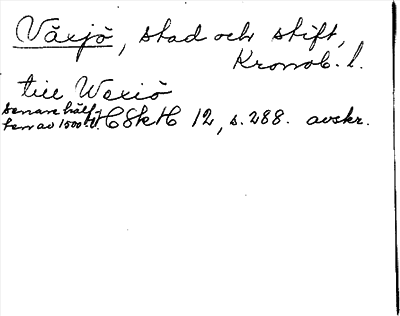 Växjö, stad och stift,
Kronob. l.
till Wexiö
senare hälf-
ten av 1500 t.
HSH 12, s. 288. avskr.